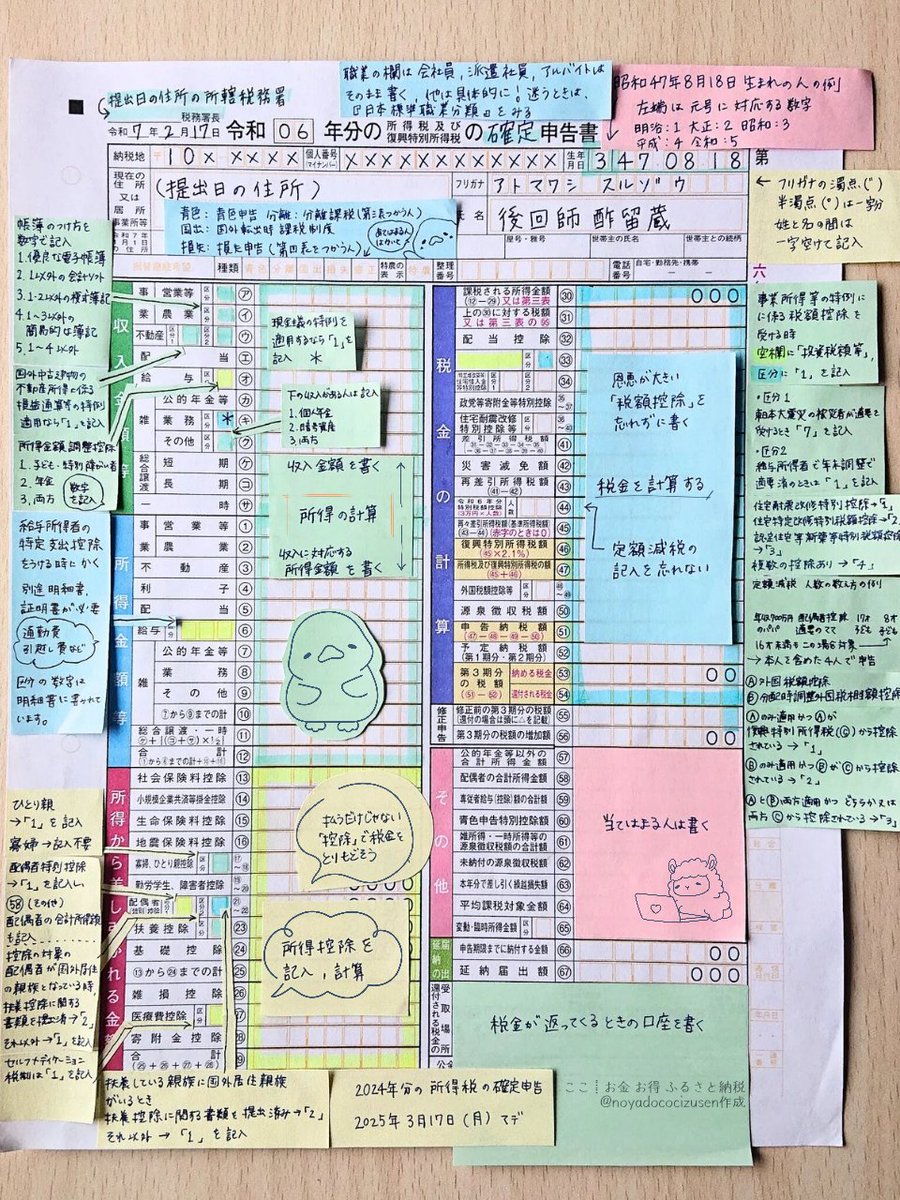 提出日の住所の所轄税務署
職業の欄は会社員,派遣社員,アルバイトは
そのまま書く,他は具体的に!迷うときは、
『日本標準職業分類』をみる
昭和47年8月18日生まれの人の例
左端は元号に対応する数字
明治:1 大正:2 昭和:3
平成:4 令和:5
税務署長
令和7年2月17日 令和06年分の所得税及び復興特別所得税の確定申告書
納税地 〒10×-×××× 個人番号 マイナンバー ×××××××××××× 生年月日 3 47 08 18
第
現在の住所又は居所事業所等
(提出日の住所)
フリガナ アトマワシ スルゾウ
氏名 後回師 酢留蔵
←フリガナの濁点(゛)
半濁点(゜)は一字分
姓と名の間は
一字空けて記入
青色:青色申告 分離:分離課税(第三表つかう人)
国出:国外転出時課税制度
損失:損失申告(第四表をつかう人)
あてはまる人はかいて
屋号・雅号
世帯主の氏名
世帯主との続柄
振替継続希望 種類 青色 分離 国出 損失 修正 特農の表示 特農 整理番号
電話番号 自宅・勤務先・携帯
帳簿のつけ方を
数字で記入
1.優良な電子帳簿
2.1以外の会計ソフト
3.1~2以外の複式簿記
4.1~3以外の
簡易的な簿記
5.1~4以外
国外中古建物の
不動産所得に係る
損益通算等の特例
適用なら「1」を記入
所得金額調整控除
1.子ども・特別障がい者
2.年金
3.両方
数字を記入
給与所得者の
特定支出控除
をうける時にかく
別途明細書、
証明書が必要
通勤費
引越し費など
区分の数字は
明細書に書かれて
います。
収入金額等
事業 営業等 区分 ㋐
農業 区分 ㋑
不動産 区分 ㋒
配当 ㋓
給与 区分 ㋔
雑 公的年金等 ㋕
業務 区分 * ㋖
その他 区分 ㋗
総合譲渡 短期 ㋘
長期 ㋙
一時 ㋚
現金主義の特例を
適用するなら「1」を
記入 *
下の収入がある人は記入
1.個人年金
2.暗号資産
3.両方
収入金額を書く
所得の計算
収入に対応する
所得金額を書く
所得金額等
事業 営業等 ①
農業 ②
不動産 ③
利子 ④
配当 ⑤
給与 区分 ⑥
雑 公的年金等 ⑦
業務 ⑧
その他 ⑨
⑦から⑨までの計 ⑩
総合譲渡・一時 ㋘+{(㋙+㋚)×½} ⑪
合計 (①から⑥までの計+⑩+⑪) ⑫
所得から差し引かれる金額
社会保険料控除 ⑬
小規模企業共済等掛金控除 ⑭
生命保険料控除 ⑮
地震保険料控除 ⑯
寡婦、ひとり親控除 区分 ⑰~⑱
勤労学生、障害者控除
配偶者(特別)控除 区分 ㉑~㉒
扶養控除 区分 ㉓
基礎控除 ㉔
⑬から㉔までの計 ㉕
雑損控除 ㉖
医療費控除 区分 ㉗
寄附金控除 ㉘
合計 (㉕+㉖+㉗+㉘)
払うだけじゃない
「控除」で税金を
とりもどそう
0000
所得控除を
記入,計算
ひとり親
→「1」を記入
寡婦→記入不要
配偶者特別控除
→「1」を記入し、
58(その他)
配偶者の合計所得金額
も記入
控除の対象の
配偶者が国外居住
の親族となっている時、
扶養控除に関する
書類を提出済→「2」
それ以外→「1」を記入
セルフメディケーション
税制は「1」を記入
扶養している親族に国外居住親族
がいるとき
扶養控除に関する書類を提出済み→「2」
それ以外→「1」を記入
税金の計算
課税される所得金額 (⑫-㉙)又は第三表 ㉚ 000
上の㉚に対する税額 又は第三表の93 ㉛
配当控除 ㉜
区分 ㉝
(特定増改築等)住宅借入金等特別控除 区分 ㉞
政党等寄附金等特別控除 ㉟~㊲
住宅耐震改修特別控除等 区分 ㊳~㊵
差引所得税額 ㊶
災害減免額 ㊷
再差引所得税額 (㊶-㊷) ㊸
令和6年分特別税額控除 (3万円×人数) ㊹
再々差引所得税額(基準所得税額) (㊸-㊹)(赤字のときは0) ㊺
復興特別所得税額 (㊺×2.1%) ㊻
所得税及び復興特別所得税の額 (㊺+㊻) ㊼
外国税額控除等 区分 ㊽~㊾
源泉徴収税額 ㊿
申告納税額 (㊼-㊽-㊾-㊿) 51
予定納税額 (第1期分・第2期分) 52
第3期分の税額 (51-52) 納める税金 53 00
還付される税金 54
修正申告
修正前の第3期分の税額 (還付の場合は頭に△を記載) 55
第3期分の税額の増加額 56 00
恩恵が大きい
「税額控除」を
忘れずに書く
税金を計算する
定額減税の
記入を忘れない
その他
公的年金等以外の合計所得金額 57
配偶者の合計所得金額 58
専従者給与(控除)額の合計額 59
青色申告特別控除額 60
雑所得・一時所得等の源泉徴収税額の合計額 61
未納付の源泉徴収税額 62
本年分で差し引く繰越損失額 63
平均課税対象金額 64
変動・臨時所得金額 区分 65
当てはまる人は書く
延納の届出
申告期限までに納付する金額 66 00
延納届出額 67 000
還付される税金の受取場所
税金が返ってくるときの口座を書く
事業所得等の特例に
に係る税額控除を
受ける時
空欄に「投資税額等」、
区分に「1」を記入
・区分1
東日本大震災の被災者が適用を
受けるとき「7」を記入
・区分2
給与所得者で年末調整で
適用済のときは「1」を記入
住宅耐震改修特別控除→「1」
住宅特定改修特別税額控除→「2」
認定住宅等新築等特別税額控除
→「3」
複数の控除あり→「4」
定額減税 人数の数え方の例
年収700万円のパパ 配偶者控除適用のママ 17才子ども 8才子ども
16才未満もこの場合対象
→本人を含めた4人で申告
Ⓐ外国税額控除
Ⓑ分配時調整外国税相当額控除
ⒶのみでⒶが
復興特別所得税(Ⓒ)から控除
されている→「1」
Ⓑのみ適用かつⒷがⒸから控除
されている→「2」
ⒶとⒷ両方適用かつどちらか又は
両方Ⓒから控除されている→「3」
2024年分の所得税の確定申告
2025年3月17日(月)マデ
ここ┊お金 お得 ふるさと納税
@noyadococizusen作成